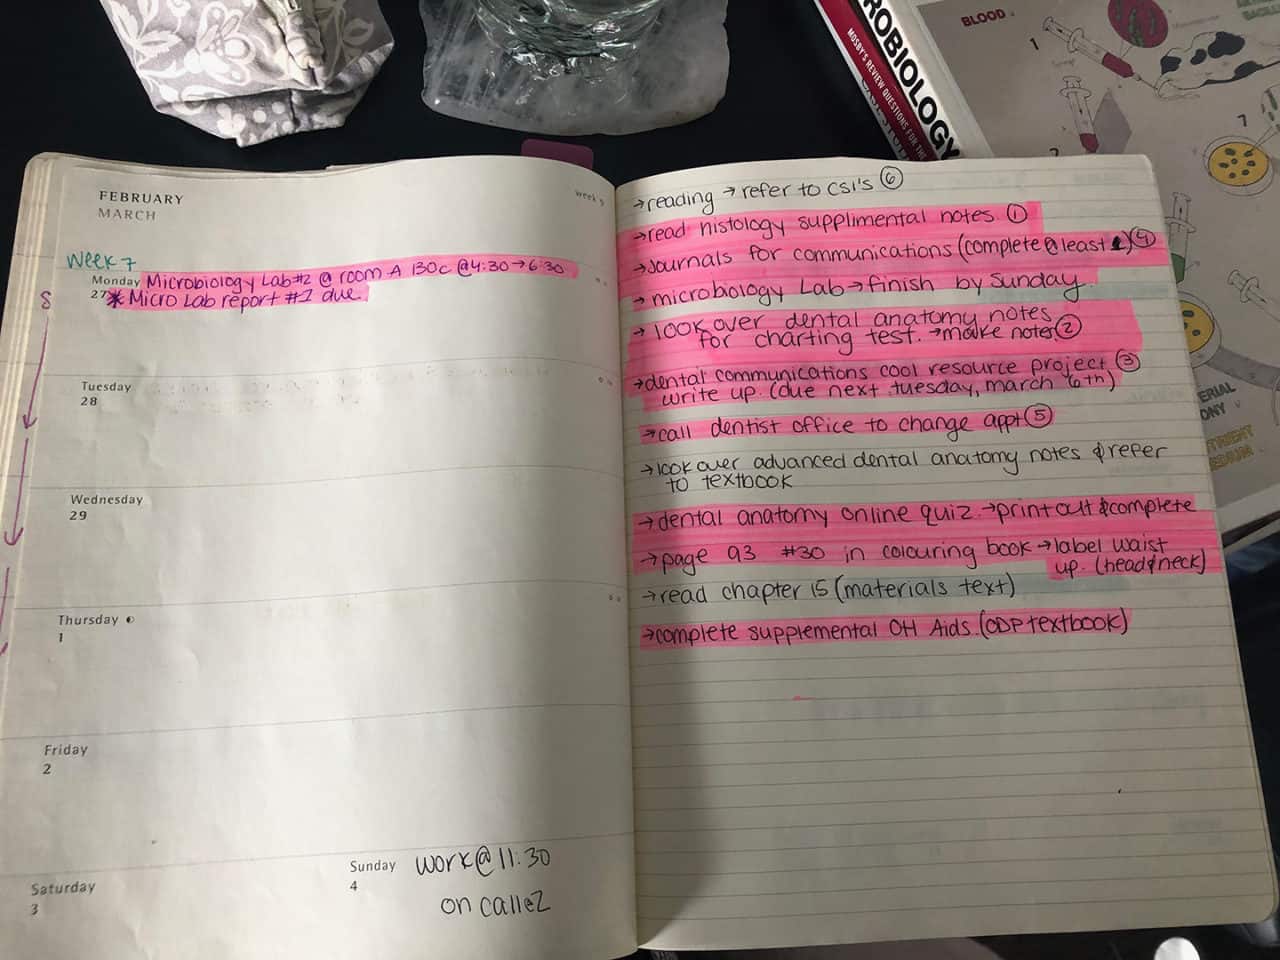 ROBIOLOGY
MOSBY'S REVIEW QUESTIONS FOR THE
BLOOD
1
7
2
FEBRUARY
MARCH
week 9
Week 7
Monday Microbiology Lab #2 @ room A 130c @ 4:30 → 6:30
27 * Micro Lab report #1 due
Tuesday
28
Wednesday
29
Thursday
1
Friday
2
Saturday
3
Sunday work @ 11:30
4
on call @ 2
→ reading → refer to CSI's ⑥
→ read histology supplimental notes ①
→ Journals for communications (complete @ least 1) ④
→ microbiology Lab → finish by Sunday
→ look over dental anatomy notes
for charting test. → make notes ②
→ dental communications cool resource project ③
write up. (due next tuesday, march 6th)
→ call dentist office to change appt ⑤
→ look over advanced dental anatomy notes & refer
to textbook
→ dental anatomy online quiz. → print out & complete
→ page 93 #30 in colouring book → label waist
up. (head & neck)
→ read chapter 15 (materials text)
→ complete supplemental OH Aids. (ODP textbook)